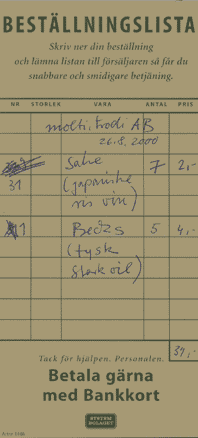 BESTÄLLNINGSLISTA
Skriv ner din beställning
och lämna listan till försäljaren så får du
snabbare och smidigare betjäning.
NR STORLEK VARA ANTAL PRIS
molti.trodi AB
26.8.2000
31 Sake 7 2,-
(japanske
ris vin)
1 Becks 5 4,-
(tysk
stark öl)
34,-
Tack för hjälpen. Personalen.
Betala gärna
med Bankkort
SYSTEM
BOLAGET